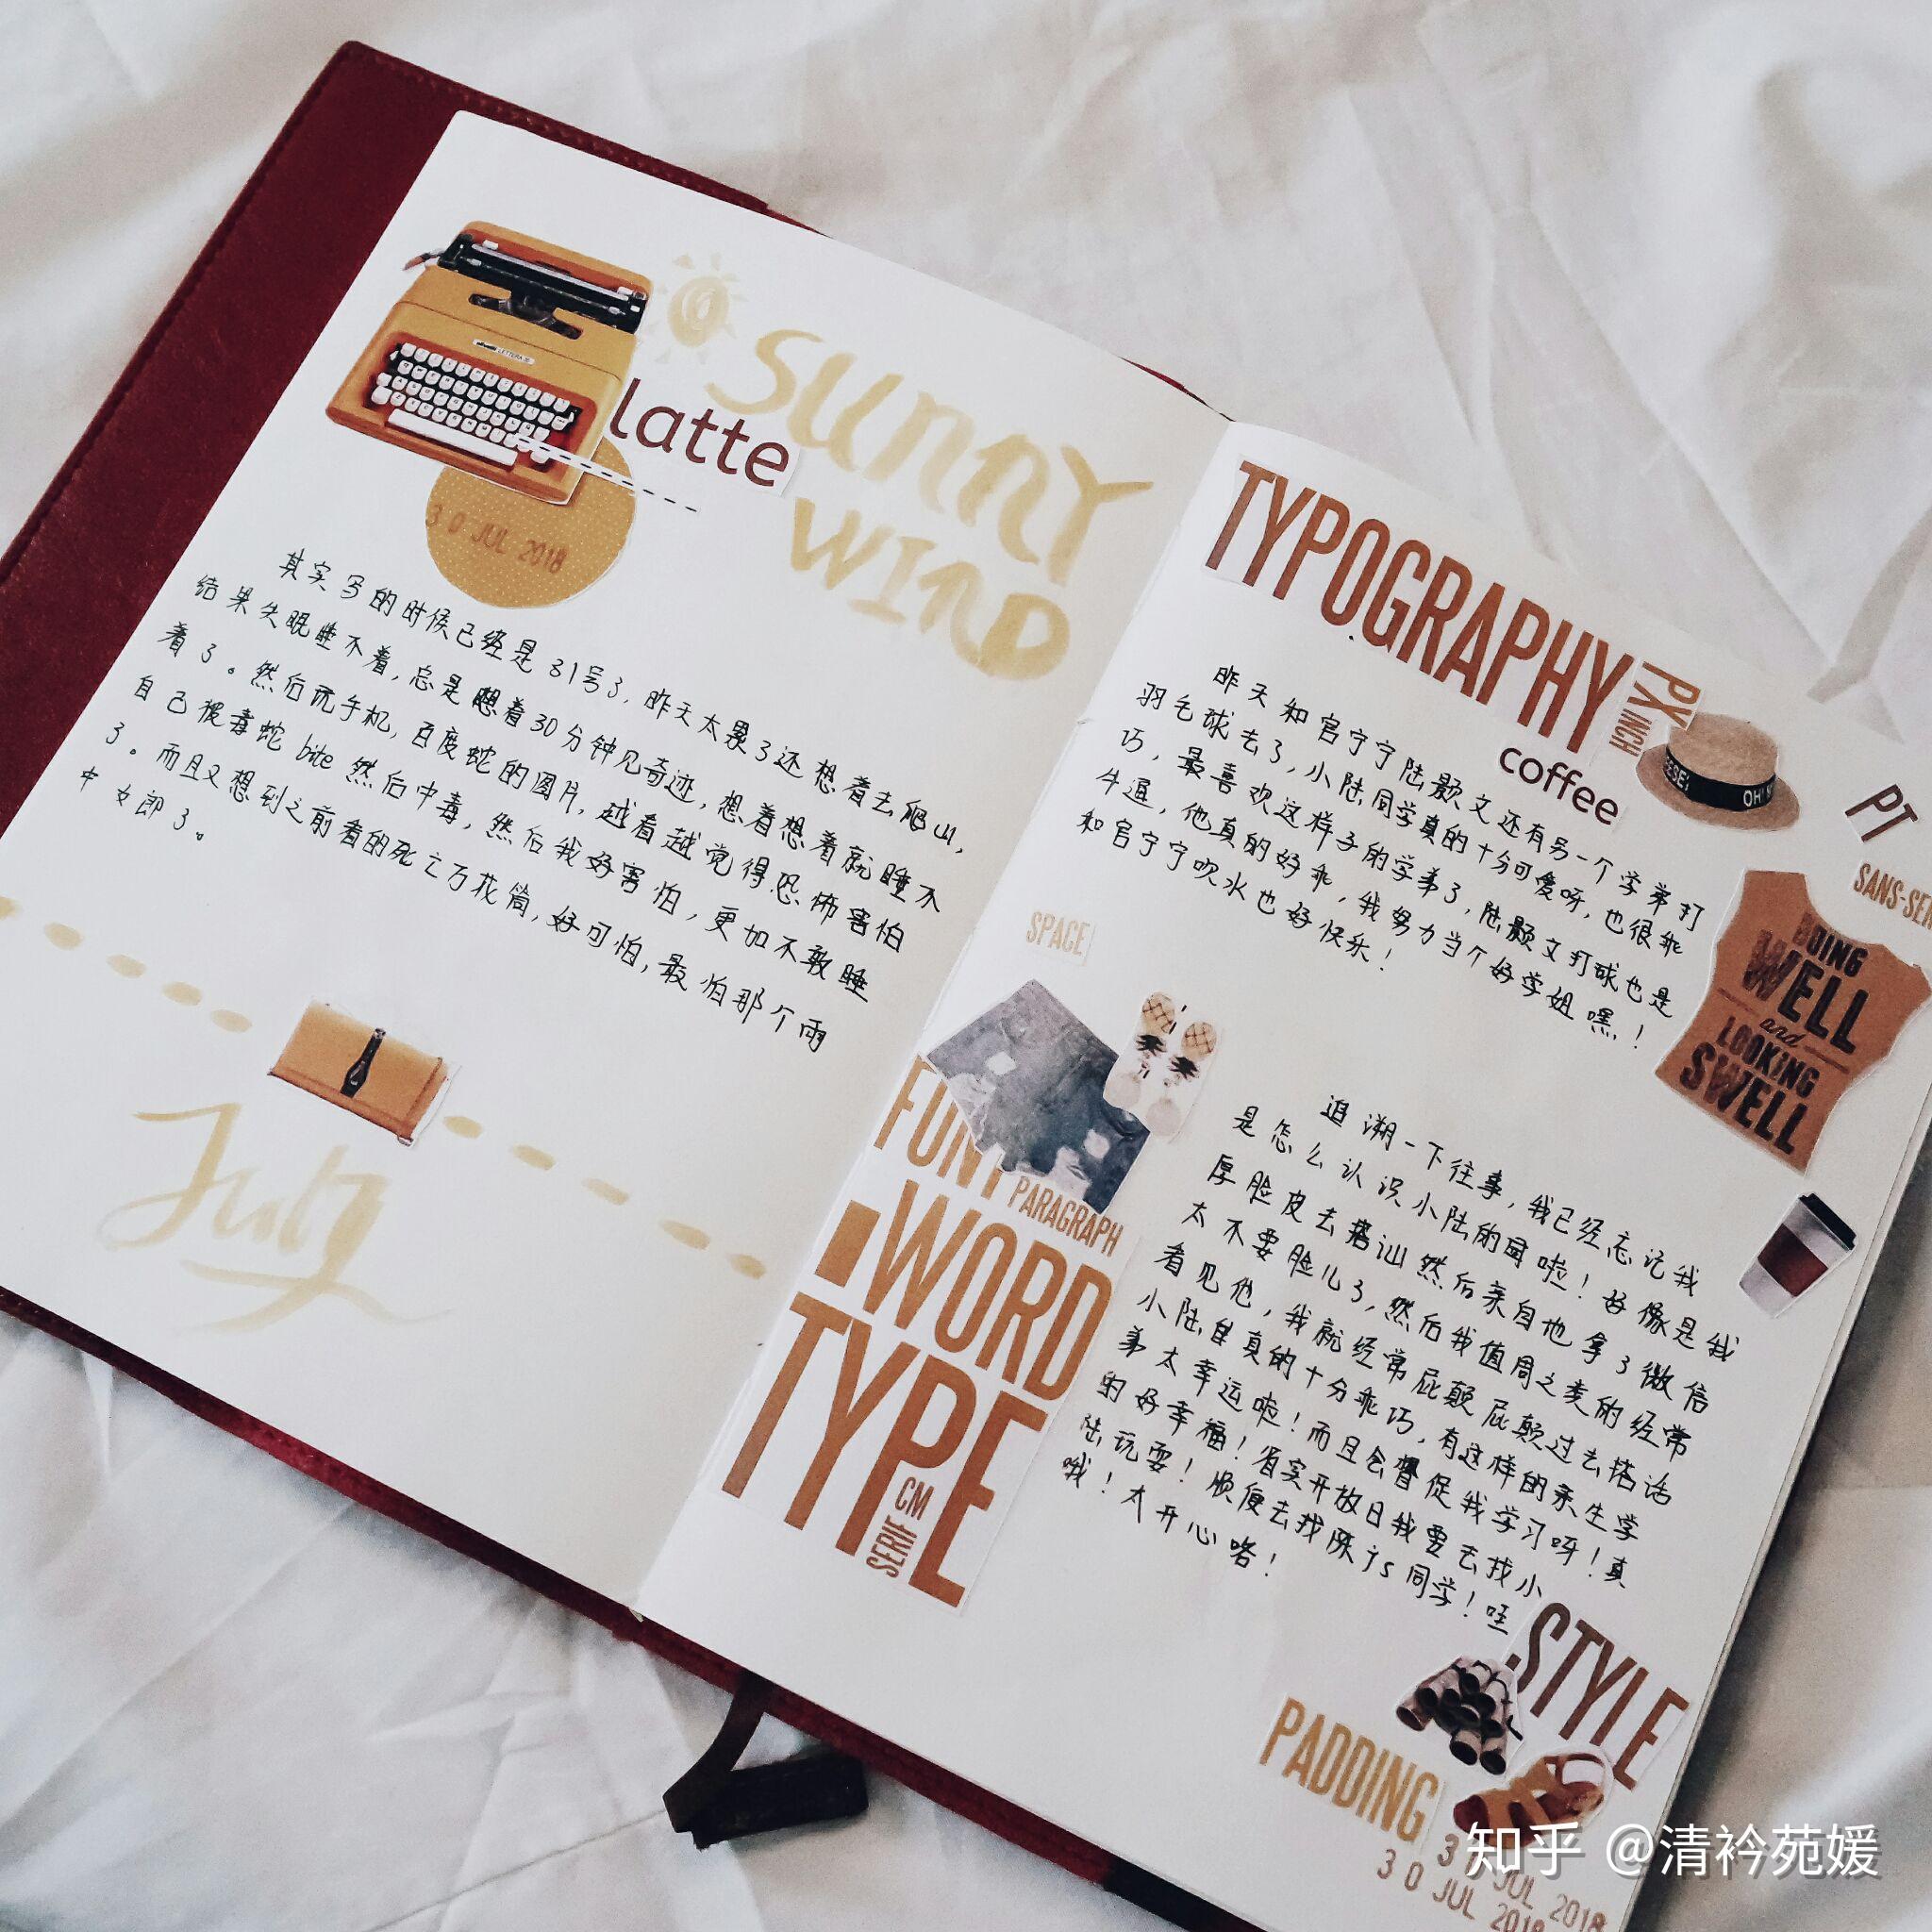 SUNNY
latte
WIND
30 JUL 2018
其实写的时候已经是31号了,昨天太累了还想着去爬山,
结果失眠睡不着,总是想着30分钟见奇迹,想着想着就睡不
着了。然后玩手机,百度蛇的图片,越看越觉得恐怖害怕
自己被毒蛇 bite 然后中毒,然后我好害怕,更加不敢睡
了。而且又想到之前看的死亡万花筒,好可怕,最怕那个雨
中女郎了。
July
TYPOGRAPHY
PX
INCH
coffee
OH!
PT
SANS-SER
昨天和官宁宁陆颢文还有另一个学弟打
羽毛球去了,小陆同学真的十分可爱呀,也很乖
巧,最喜欢这样子的学弟了,陆颢文打球也是
牛逼,他真的好乖,我努力当个好学姐嘿!
和官宁宁吹水也好快乐!
DOING
WELL
and
LOOKING
SWELL
SPACE
FONT
PARAGRAPH
WORD
TYPE
CM
SERIF
追溯一下往事,我已经忘记我
是怎么认识小陆的啦!好像是我
厚脸皮去搭讪然后亲自也拿了微信
太不要脸儿了,然后我值周之类的经常
看见他,我就经常屁颠屁颠过去搭话
小陆真的十分乖巧,有这样的亲生学
弟太幸运啦!而且会督促我学习呀!真
的好幸福!省实开放日我要去找小
陆玩耍!顺便去找陈js同学!哇
哦!太开心咯!
STYLE
PADDING
31 JUL 2018
30 JUL 2018
知乎 @清衿苑媛